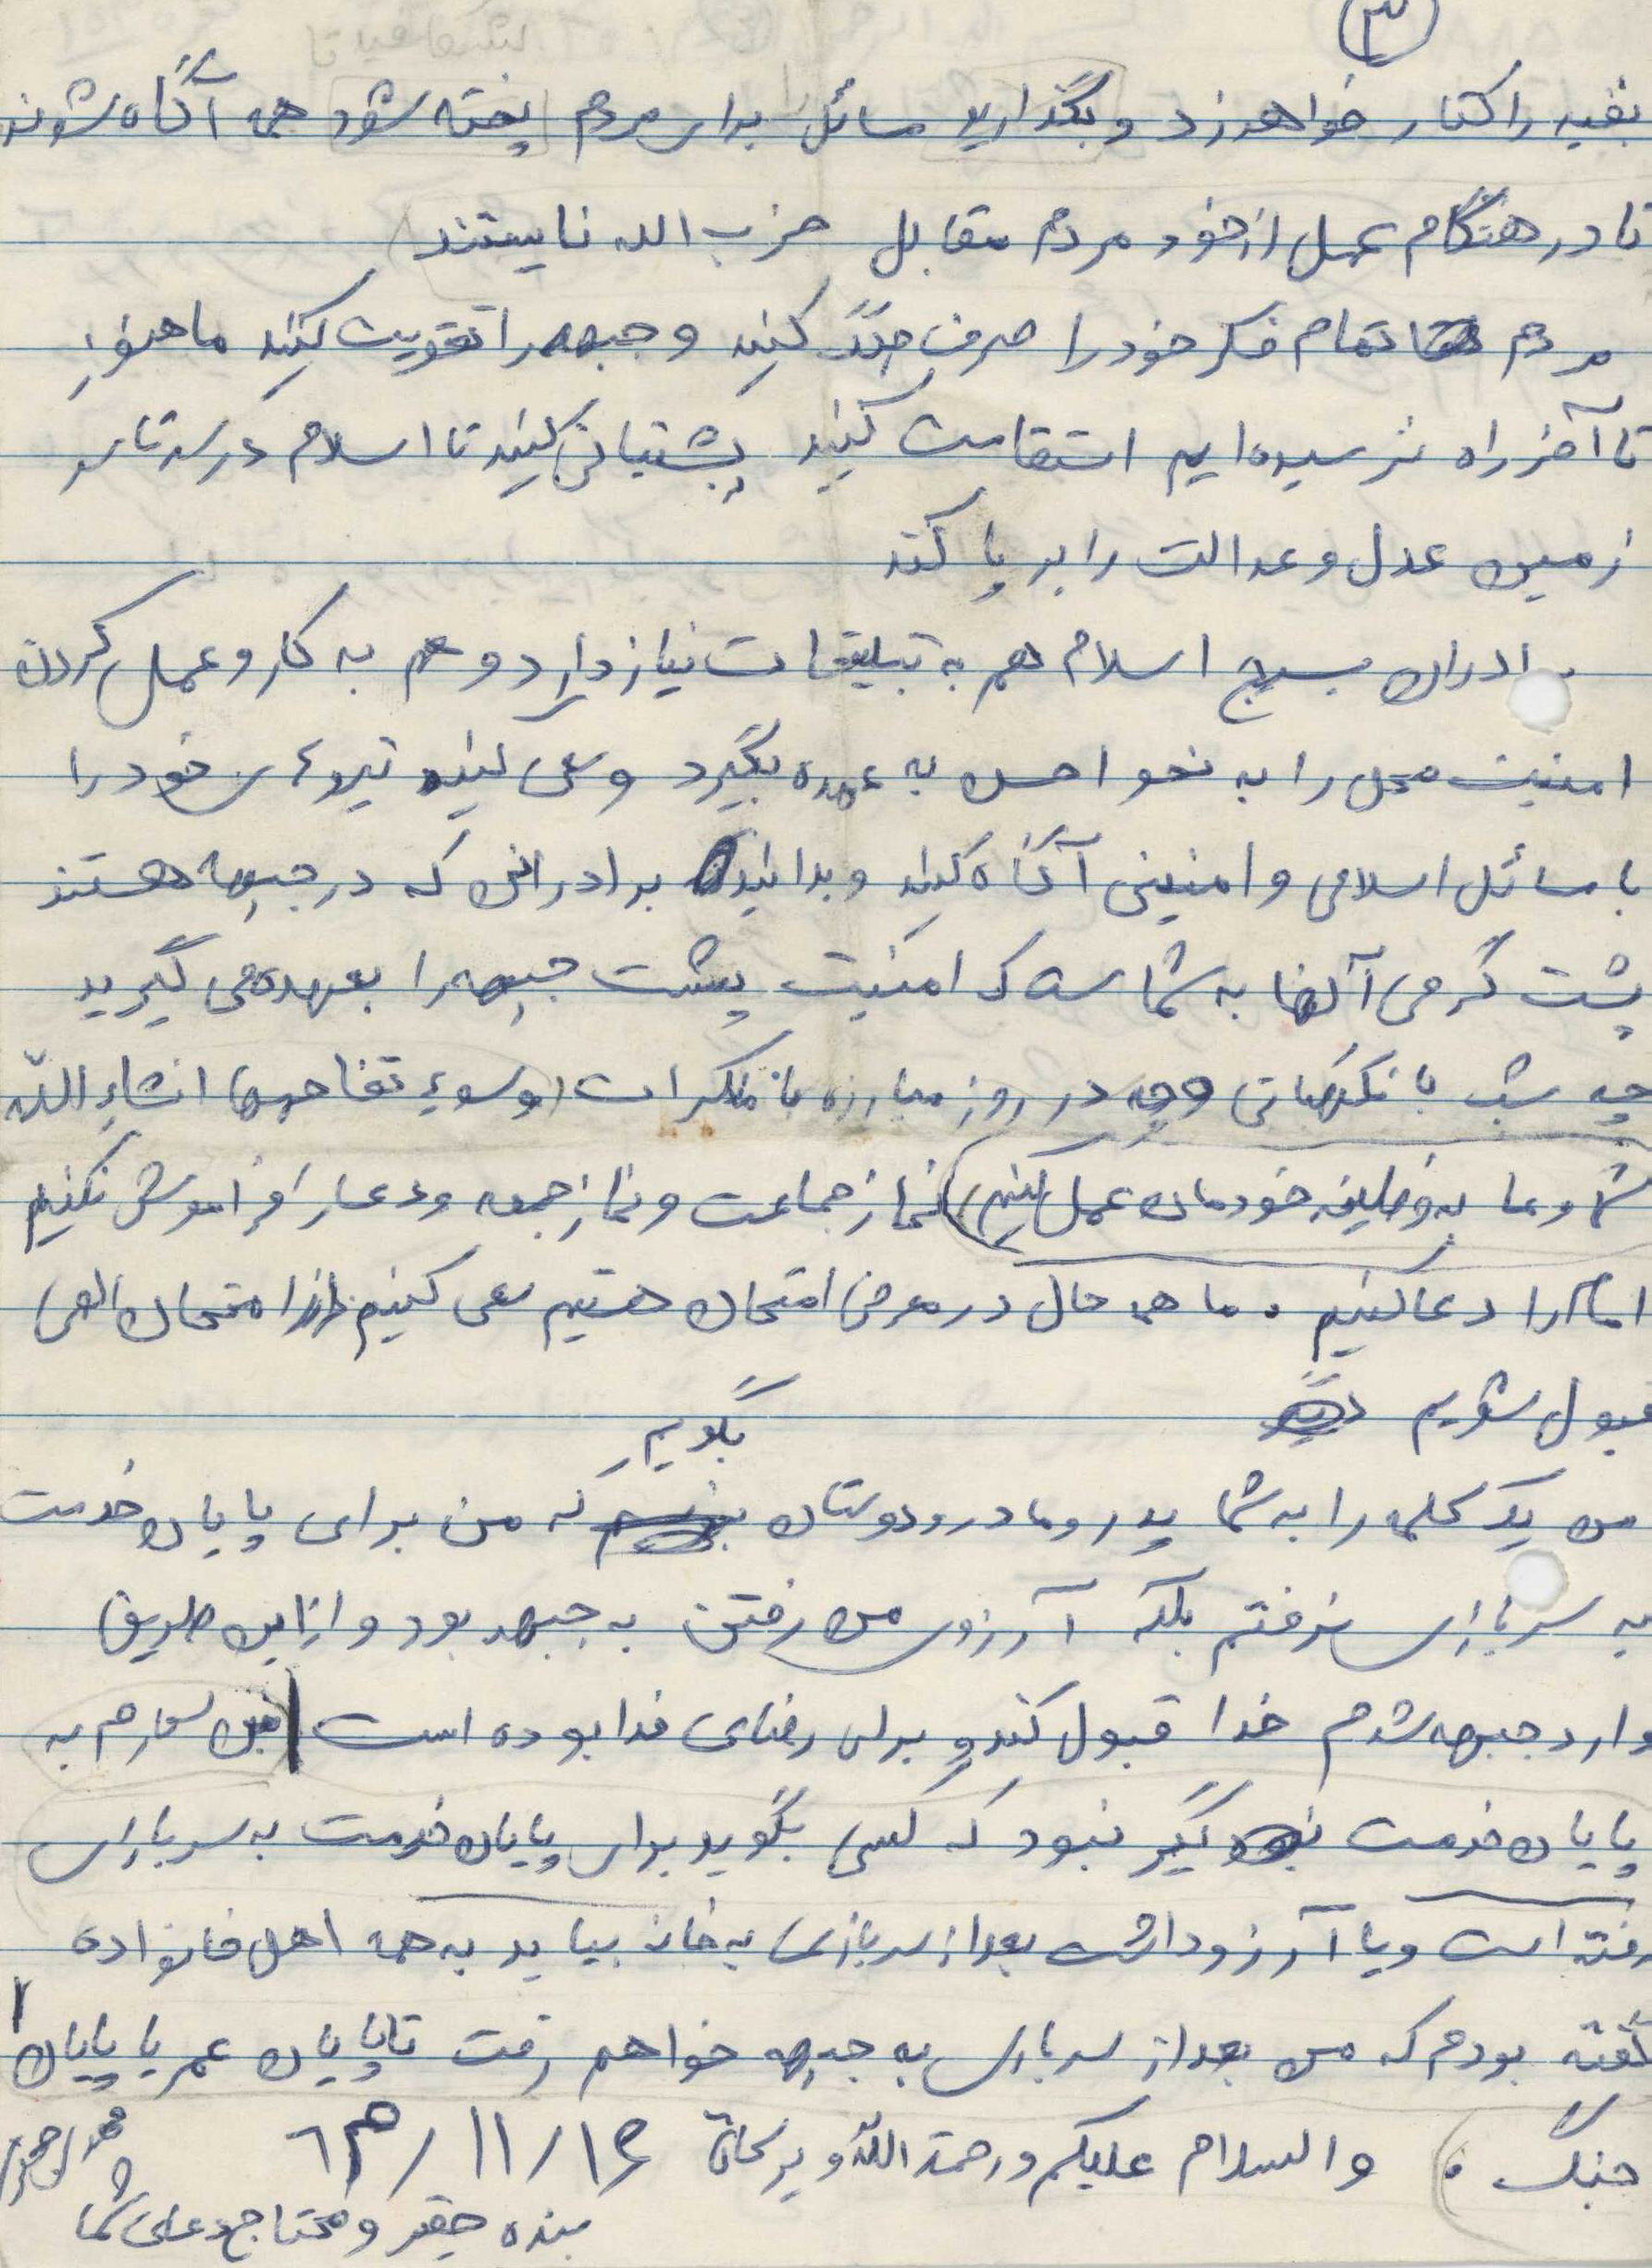 ۳
بقیه را کنار خواهد زد و بگذارید مسائل برای مردم پخته شود همه آگاه شوند
تا در هنگام عمل از خود مردم مقابل حزب الله نایستند
مردم تمام فکر خود را صرف جنگ کنید و جبهه را تقویت کنید ما هنوز
تا آخر راه نرسیده‌ایم استقامت کنید پشتبانی کنید تا اسلام در سرتاسر
زمین عدل و عدالت را بر پا کند
برادران بسیج اسلام هم به تبلیغات نیاز دارد و هم به کار و عمل کردن
امنیت محل را به نحو احسن به عهده بگیرد و سعی کنید نیروی خود را
با مسائل اسلامی و امنیتی آگاه کنید و بدانید برادرانی که در جبهه هستند
پشت گرمی آنها به شماست که امنیت پشت جبهه را بعهده می گیرید
چه شب با نگهبانی و چه در روز مبارزه با منکرات و سوء تفاهم‌ها انشاء الله
شما و ما به وظیفه خودمان عمل کنیم) نماز جماعت و نماز جمعه و دعا را فراموش نکنیم
امام را دعا کنیم . ما همه حال در معرض امتحان هستیم سعی کنیم از امتحان الهی
قبول شویم
بگویم
من یک کلمه را به شما پدر و مادر و دوستان که من برای پایان خدمت
به سربازی نرفتم بلکه آرزوی من رفتن به جبهه بود و از این طریق
وارد جبهه شدم خدا قبول کند و برای رضای خدا بوده است به
پایان خدمت نبود که کسی بگوید برای پایان خدمت به سربازی
رفته است و یا آرزو داشت بعد از سربازی به خانه بیاید به همه اهل خانواده
گفته بودم که من بعد از سربازی به جبهه خواهم رفت تا پایان عمر یا پایان
جنگ . ) والسلام علیکم و رحمة الله و برکاته ۶۳/۱۱/۱۶
بنده حقیر و محتاج دعای شما